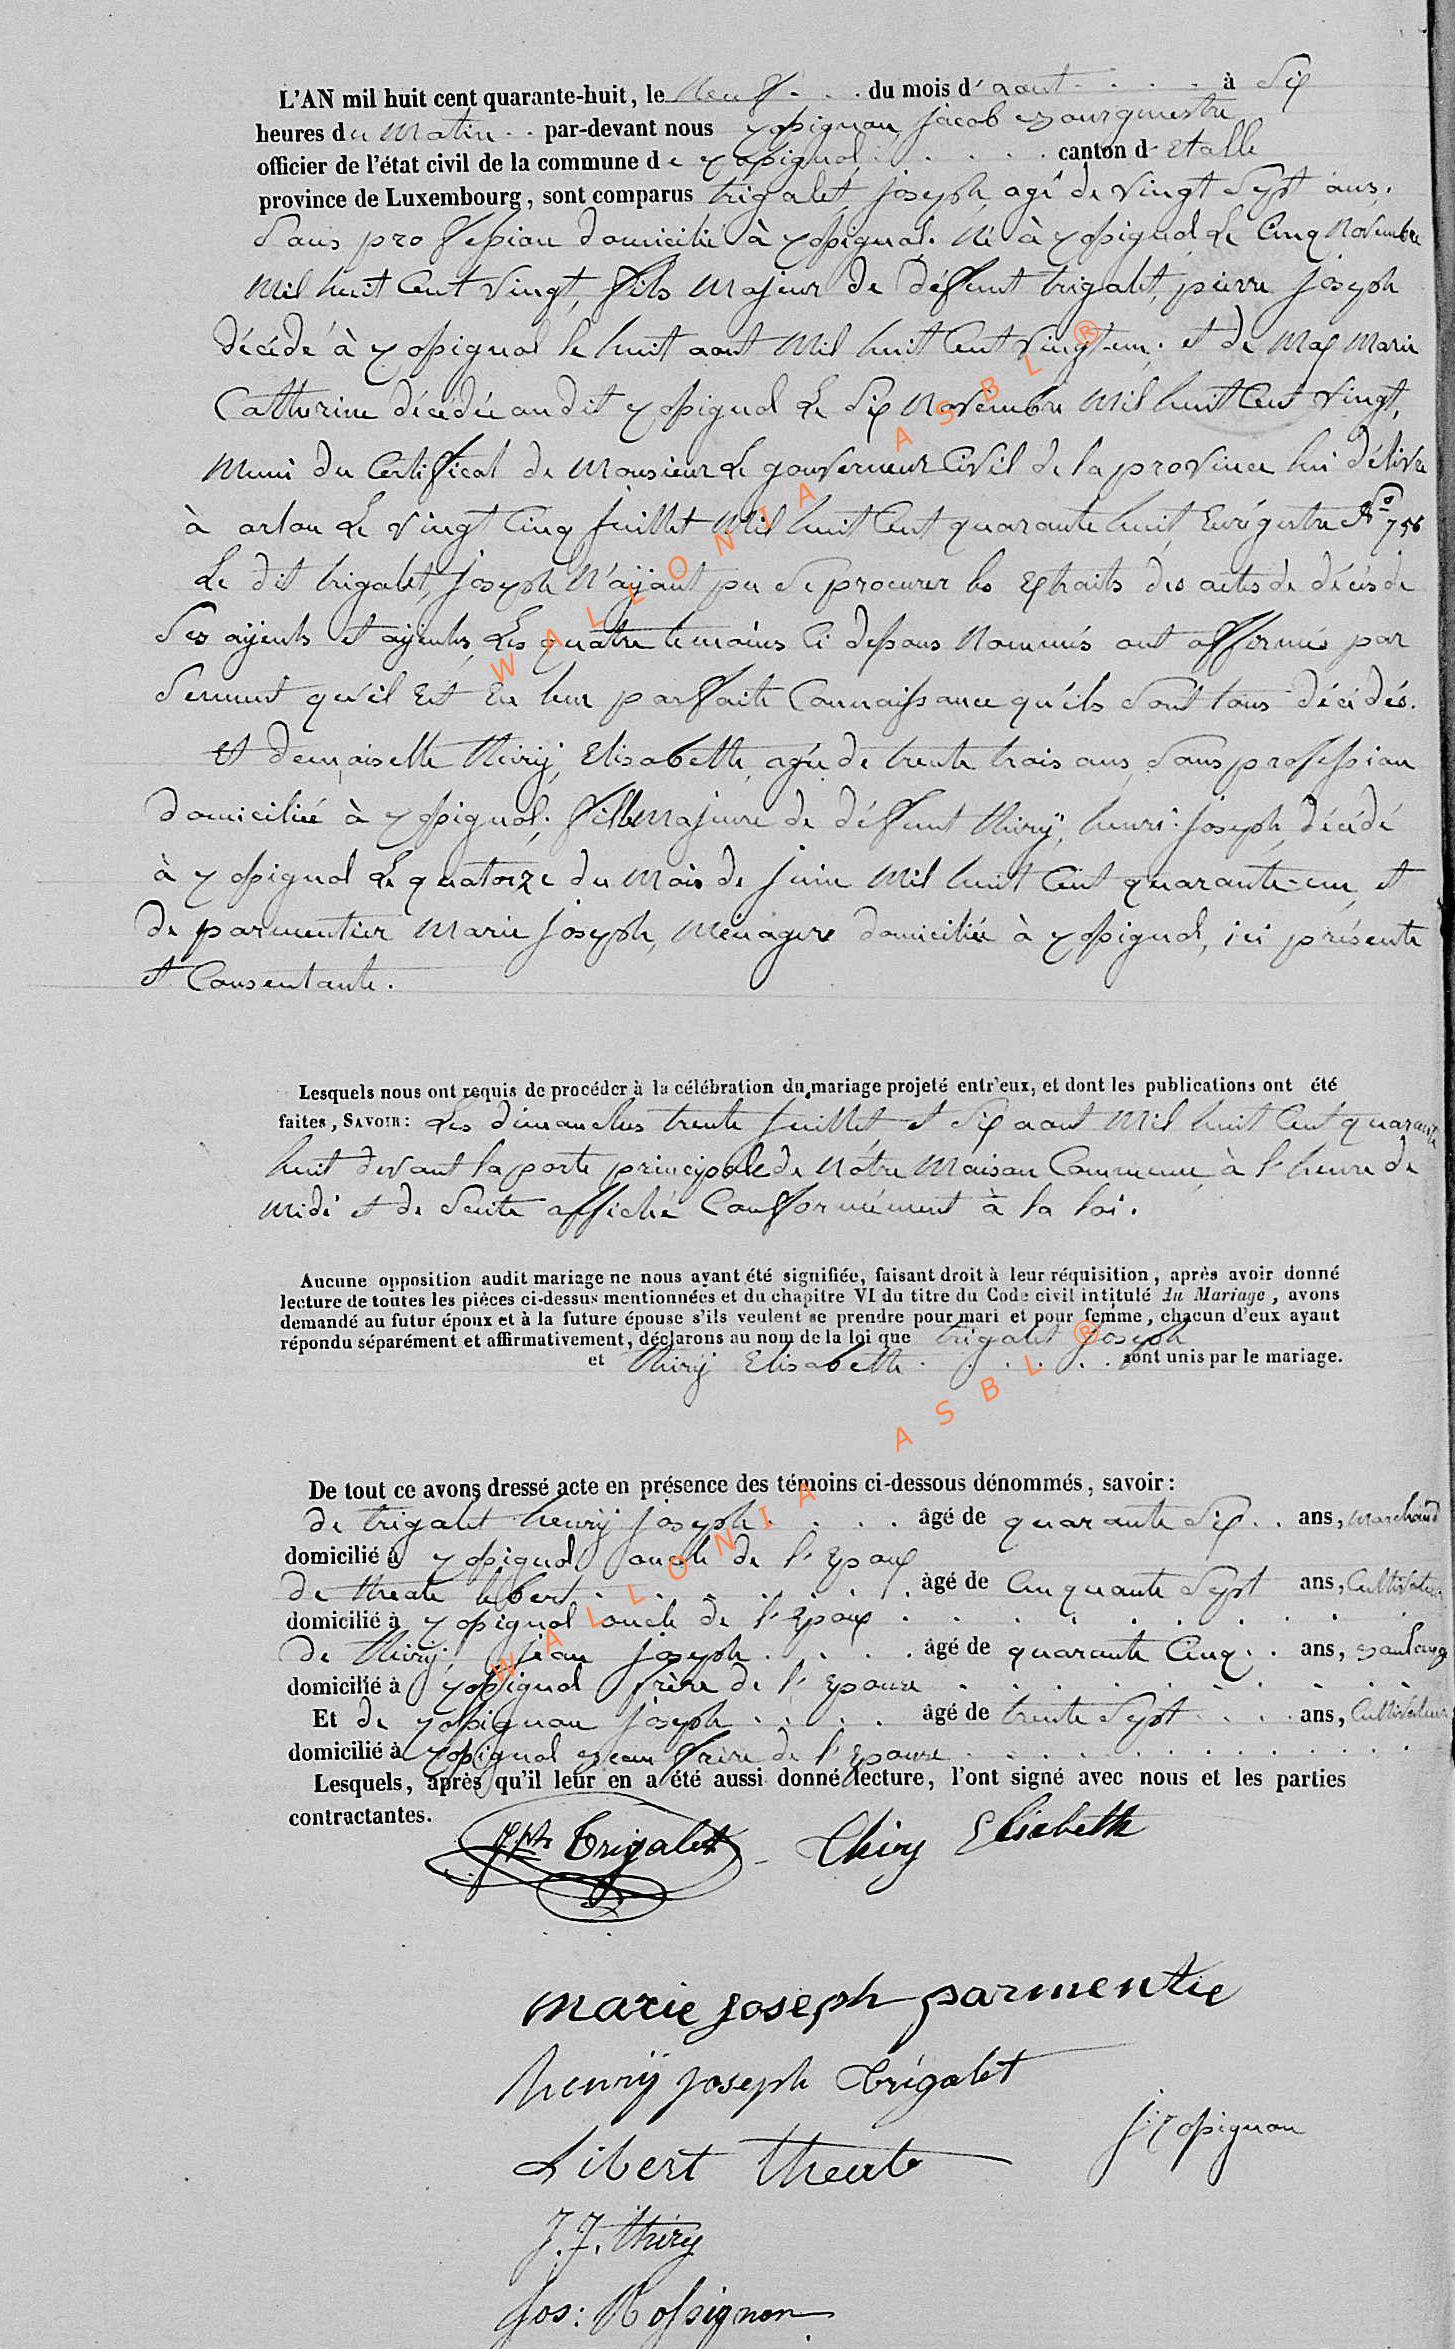 L'AN mil huit cent quarante-huit, le Neuf . . . du mois d'aout . . . . à Six
heures du Matin . . par-devant nous rossignon, jacob Bourguestre
officier de l'état civil de la commune de rossignol . . . . . canton d'Etalle
province de Luxembourg, sont comparus trigalet, joseph, agé de vingt Sept ans,
Sans profession domicilié à rossignol. Né à rossignol Le Cinq Novembre
Mil huit Cent Vingt, fils Majeur de déffunt trigalet, pierre joseph
décédé à rossignol le huit aout Mil huit Cent Vingt-un; et de Max Marie
Catherine décédée audit rossignol Le Six Novembre Mil huit Cent Vingt,
Muni du Certificat de Monsieur Le gouverneur Civil de la province lui délivré
à arlon Le Vingt Cinq Juillet Mil huit Cent quarante huit Enrégistré No 756
Le dit trigalet, joseph N'aÿant pu Se procurer les Extraits des actes de décès de
Ses aÿeuls et aÿeules, Les quatre temoins Ci dessous Nommés ont affirmé par
Serment qu'il Est En leur parfaite Connaissance qu'ils Sont tous décédés.
Et demoiselle thirÿ, Elisabeth, agée de trente trois ans, Sans profession
domiciliée à rossignol; fille Majeure de déffunt thirÿ, henri-joseph, décédé
à rossignol Le quatorze du Mois de Juin Mil huit Cent quarante-un, et
de parmentier Marie joseph, Ménagere domiciliée à rossignol, ici présente
et Consentante.
Lesquels nous ont requis de procéder à la célébration du mariage projeté entr'eux, et dont les publications ont été
faites, SAVOIR: Les dimanches trente Juillet et Six aout Mil huit Cent quarante
huit devant la porte principale de Nôtre Maison Commune à l'heure de
Midi et de Suite affiché Conformément à la loi.
Aucune opposition audit mariage ne nous ayant été signifiée, faisant droit à leur réquisition, après avoir donné
lecture de toutes les pièces ci-dessus mentionnées et du chapitre VI du titre du Code civil intitulé du Mariage, avons
demandé au futur époux et à la future épouse s'ils veulent se prendre pour mari et pour femme, chacun d'eux ayant
répondu séparément et affirmativement, déclarons au nom de la loi que trigalet joseph
et thirÿ Elisabeth . . . . . sont unis par le mariage.
De tout ce avons dressé acte en présence des témoins ci-dessous dénommés, savoir:
de trigalet henrÿ joseph . . . . âgé de quarante Six . . ans, Marchand
domicilié à rossignol oncle de l'Epoux
de theate libert . . . . . . . âgé de Cinquante Sept ans, Cultivateur
domicilié à rossignol oncle de l'Epoux . . . . . . . .
de thirÿ, jean joseph . . . . âgé de quarante Cinq . . ans,
domicilié à rossignol frère de l'Epouse . . . . . . . .
Et de rossignon joseph . . . . âgé de trente Sept . . . . ans, Cultivateur
domicilié à rossignol Beau frère de l'Epouse . . . . . . . .
Lesquels, après qu'il leur en a été aussi donné lecture, l'ont signé avec nous et les parties
contractantes.
Jph Trigalet Thiry Elisabeth
marie joseph parmentie
henrÿ joseph trigalet
j: rossignon
Libert theate
J. J. thiry
Jos: Rossignon
WALLONIA ASBL ®
WALLONIA ASBL ®